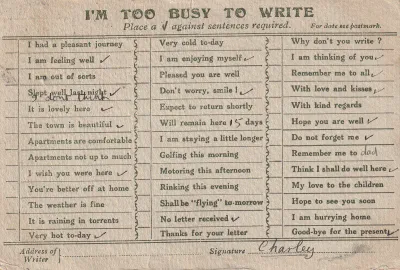 I'M TOO BUSY TO WRITE
Place a ✓ against sentences required. For date see postmark.
I had a pleasant journey
I am feeling well ✓
I am out of sorts
Slept well last night ✓
I dont think
It is lovely here ✓
The town is beautiful ✓
Apartments are comfortable
Apartments not up to much
I wish you were here ✓
You're better off at home
The weather is fine
It is raining in torrents
Very hot to-day ✓
Very cold to-day
I am enjoying myself ✓
Pleased you are well
Don't worry, smile! ✓
Expect to return shortly
Will remain here 15 days
I am staying a little longer
Golfing this morning
Motoring this afternoon
Rinking this evening
Shall be "flying" to-morrow
No letter received ✓
Thanks for your letter
Why don't you write ?
I am thinking of you ✓
Remember me to all ✓
With love and kisses ✓
With kind regards
Hope you are well ✓
Do not forget me ✓
Remember me to dad
Think I shall do well here ✓
My love to the children
Hope to see you soon
I am hurrying home
Good-bye for the present ✓
Address of Writer
Signature Charley